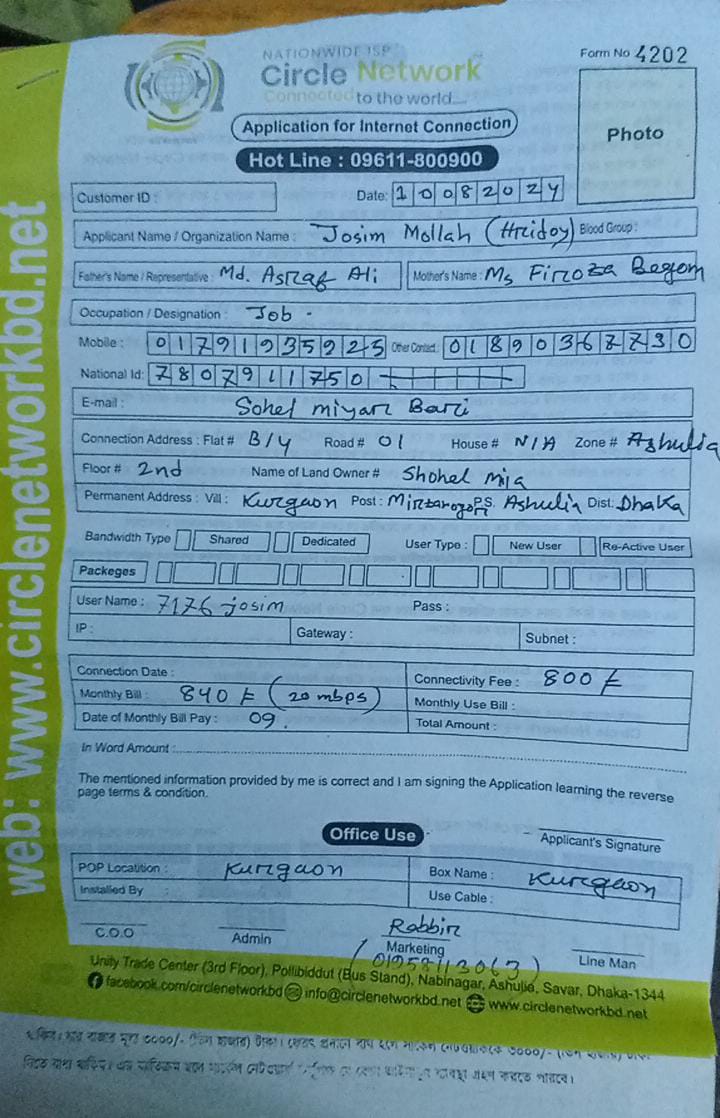 NATIONWIDE ISP
Circle Network
Connected to the world....
Form No 4202
Application for Internet Connection
Photo
Hot Line : 09611-800900
Customer ID :
Date: 10082024
Applicant Name / Organization Name : Josim Mollah (Hridoy) Blood Group :
Father's Name / Representative : Md. Asraf Ali Mother's Name : Ms Firoza Begom
Occupation / Designation : Job -
Mobile : 01791935925 Other Contact: 01890367730
National Id: 7807911750
E-mail : Sohel miyar Bari
Connection Address : Flat # B/4 Road # 01 House # N/A Zone # Ashulia
Floor # 2nd Name of Land Owner # Shohel mia
Permanent Address : Vill : Kurgaon Post : P.S. Ashulia Dist: Dhaka
Bandwidth Type Shared Dedicated User Type : New User Re-Active User
Packeges
User Name : 7176-josim Pass :
IP : Gateway : Subnet :
Connection Date : Connectivity Fee : 800 ৳
Monthly Bill : 840 ৳ (20 mbps) Monthly Use Bill :
Date of Monthly Bill Pay : 09. Total Amount :
In Word Amount :
The mentioned information provided by me is correct and I am signing the Application learning the reverse
page terms & condition.
Office Use
Applicant's Signature
POP Locatition : Kurgaon Box Name : Kurgaon
Installed By : Use Cable :
Robbin
C.O.O Admin Marketing Line Man
(01958113063)
Unity Trade Center (3rd Floor), Pollibiddut (Bus Stand), Nabinagar, Ashulie, Savar, Dhaka-1344
facebook.com/circlenetworkbd info@circlenetworkbd.net www.circlenetworkbd.net
web: www.circlenetworkbd.net